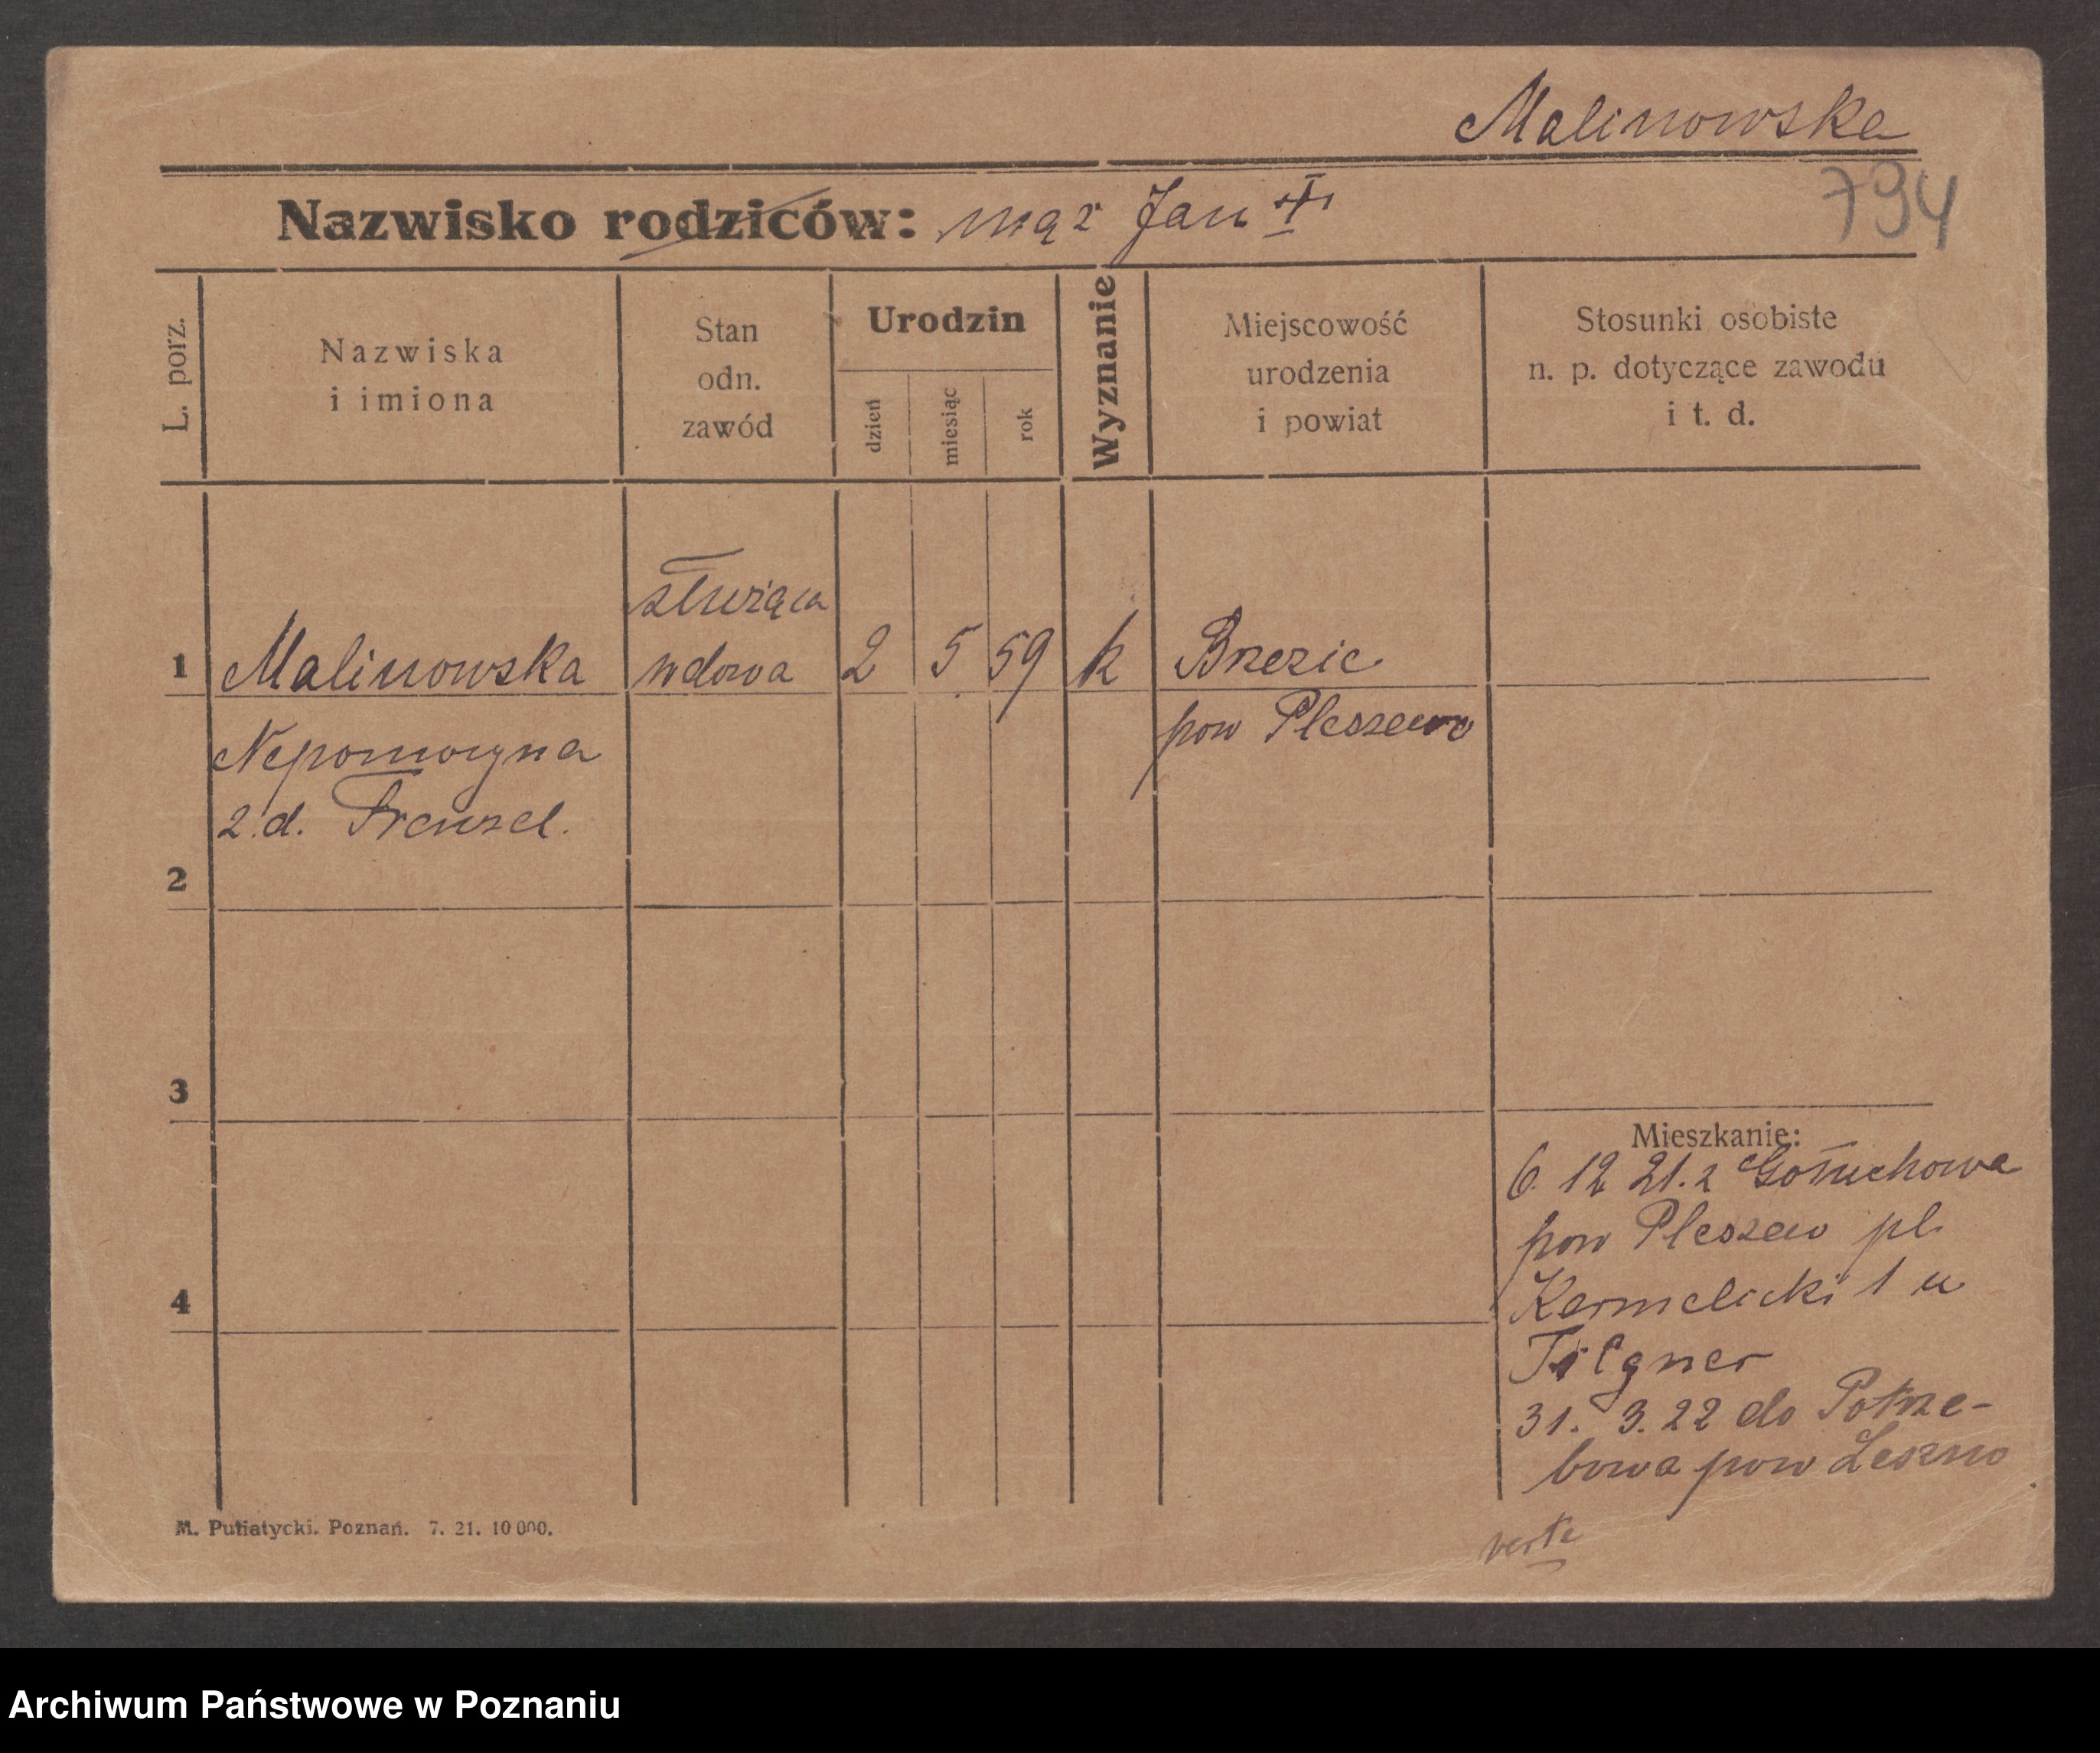 Malinowska
794
Nazwisko rodziców: mąż Jan
L. porz.
Nazwiska
i imiona
Stan
odn.
zawód
Urodzin
dzień
miesiąc
rok
Wyznanie
Miejscowość
urodzenia
i powiat
Stosunki osobiste
n. p. dotyczące zawodu
i t. d.
służąca
1 Malinowska wdowa 2 5 59 k Brzezie
pow Pleszewo
Nepomocyna
z.d. Frenzel.
2
3
Mieszkanie:
6. 12 21. z Gołuchowa
pow Pleszew pl.
4
Karmelicki 1 u
Tilgner
31. 3. 22 do Potrze-
bowa pow Leszno
M. Putiatycki. Poznań. 7. 21. 10 000.
verte
Archiwum Państwowe w Poznaniu